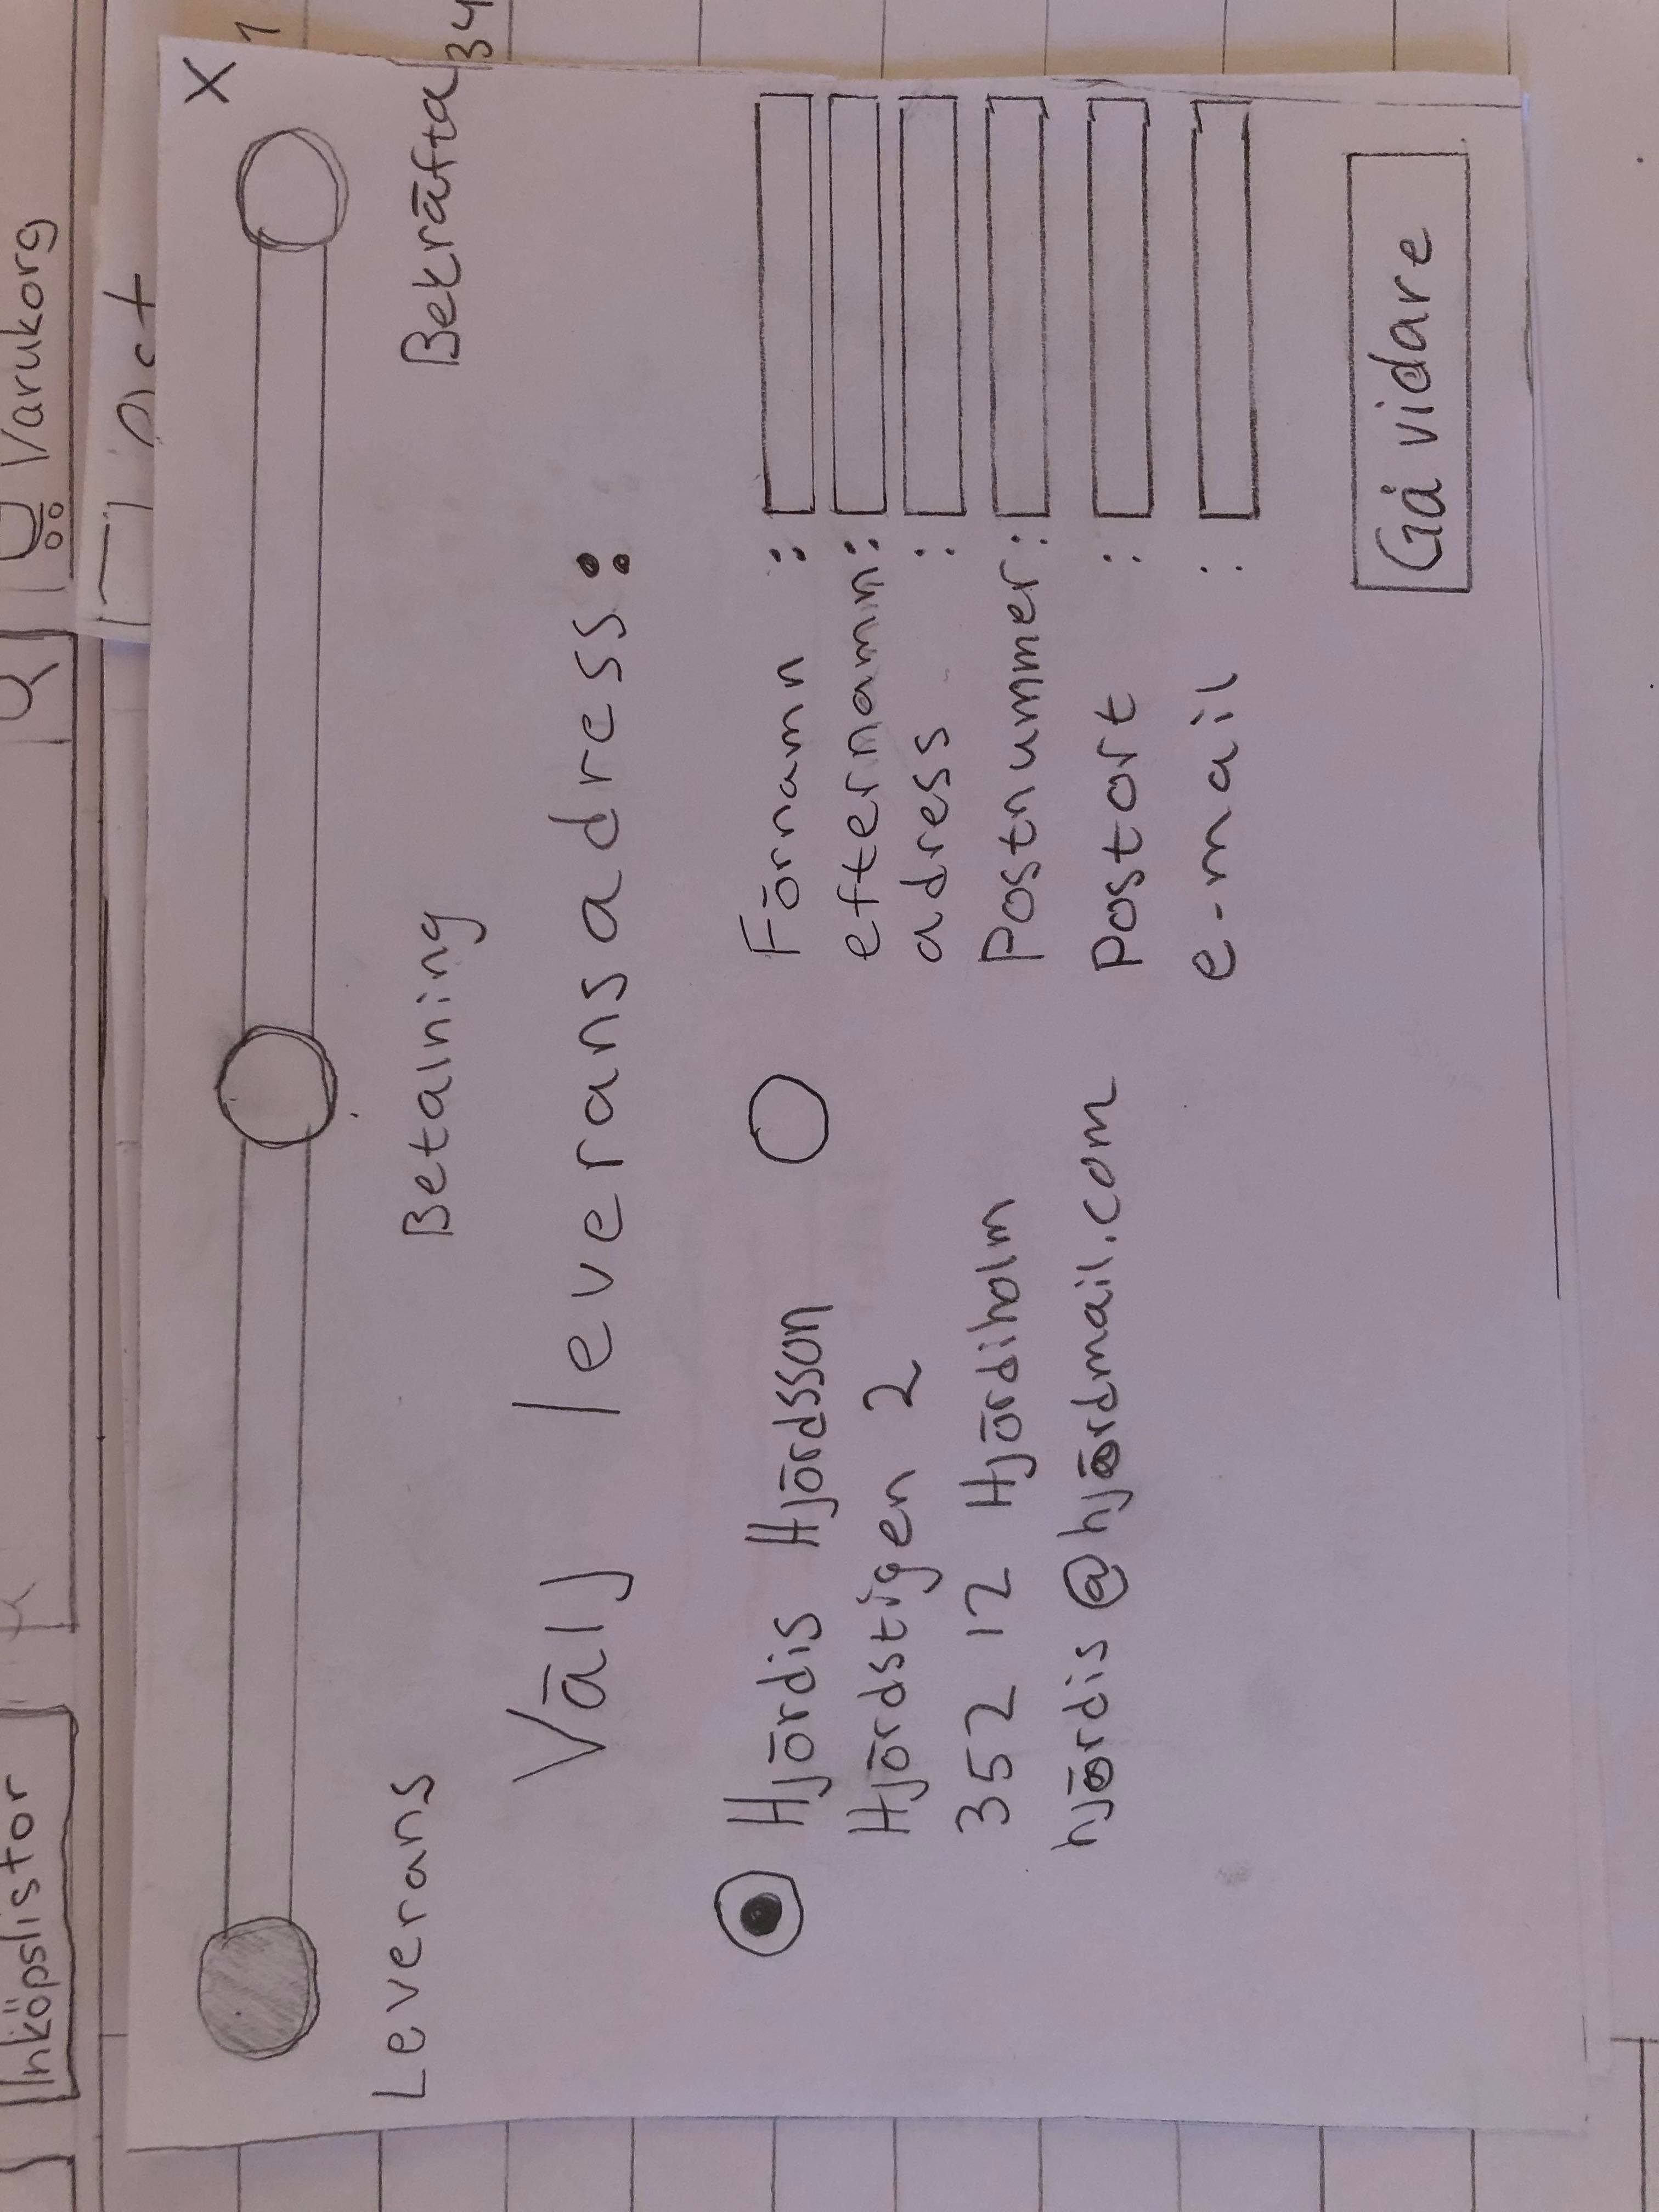 Inköpslistor
Varukorg
X
Leverans
Betalning
Bekräfta
Välj leveransadress:
Hjördis Hjördsson
Hjördstigen 2
352 12 Hjördiholm
hjördis@hjördmail.com
Förnamn :
efternamn:
adress :
Postnummer:
Postort :
e-mail :
Gå vidare